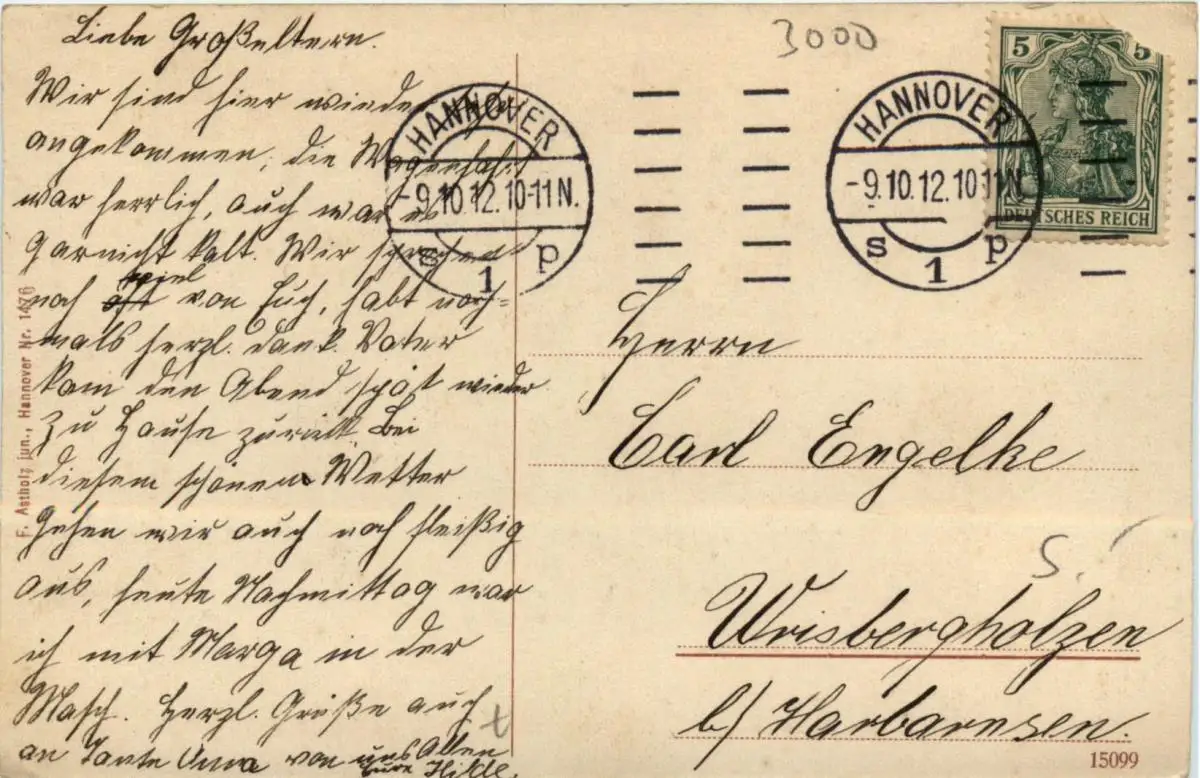 Liebe Großeltern.
Wir sind hier wieder
angekommen, die Wagenfahrt
war herrlich, auch war es
garnicht kalt. Wir sprechen
noch viel von Euch, habt noch-
mals herzl. Dank. Vater
kam den Abend spät wieder
zu Hause zurück. Bei
diesem schönen Wetter
gehen wir auch noch fleißig
aus, heute Nachmittag war
ich mit Marga in der
Masch. Herzl. Grüße auch
an Tante Anna von uns Allen
Eure Hilde.
F. Astholz jun., Hannover Nr. 1476
3000
HANNOVER
-9.10.12.10-11N.
s 1 p
HANNOVER
-9.10.12.10-11N
s 1 p
5 5
DEUTSCHES REICH
Herrn
Carl Engelke
S.
Wrisbergholzen
b/ Harbarnsen.
15099